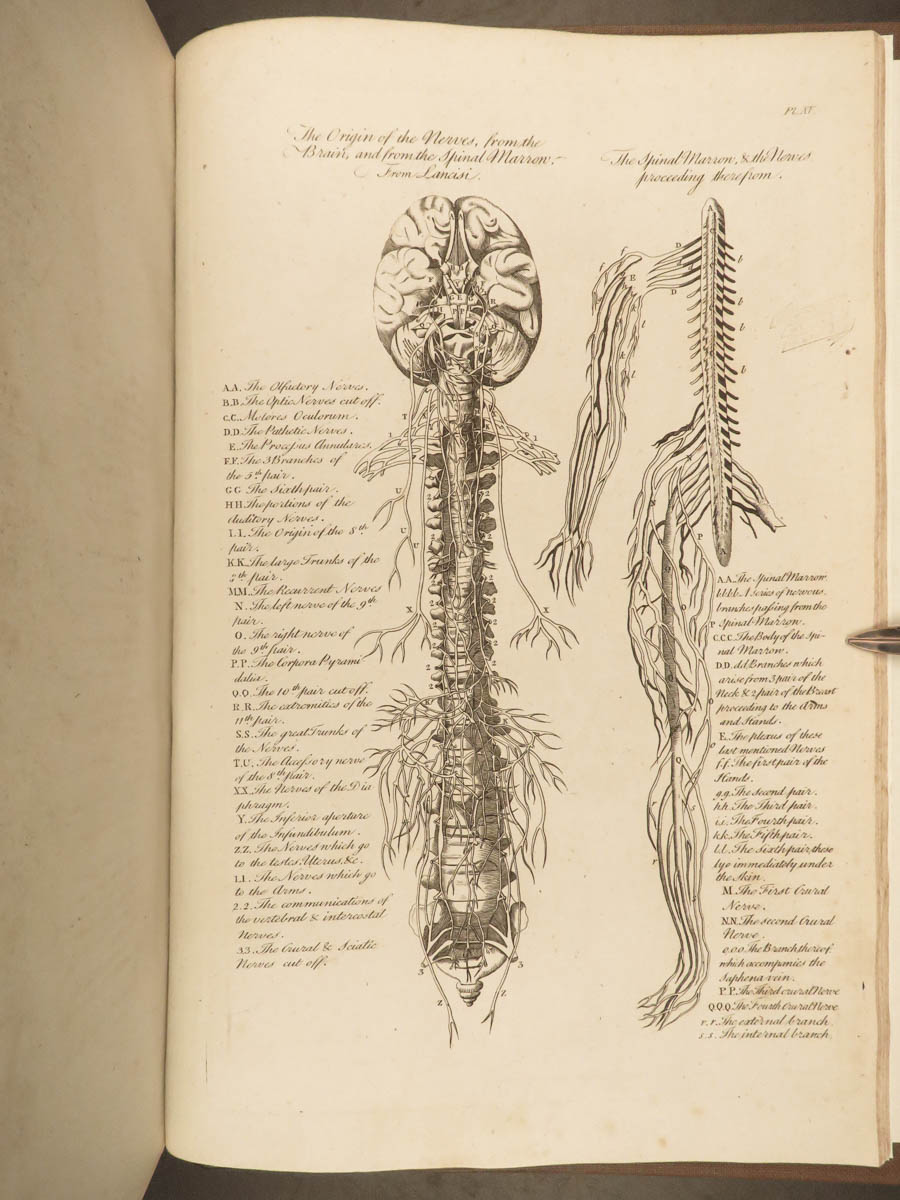 Pl. XI.
The Origin of the Nerves, from the
Brain, and from the Spinal Marrow,
From Lancisi.
A.A. The Olfactory Nerves.
B.B. The Optic Nerves cut off.
C.C. Motores Oculorum.
D.D. The Pathetic Nerves.
E. The Processus Annulares.
F.F. The 3 Branches of
the 5th pair.
G G The Sixth pair.
H H. The portions of the
Auditory Nerves.
I.I. The Origin of the 8th
pair.
K.K. The large Trunks of the
M M. The Recurrent Nerves
N. The left nerve of the 9th
pair.
O. The right nerve of
the 9th pair.
P.P. The Corpora Pyrami
dalia.
Q.Q. The 10th pair cut off.
R.R. The extremities of the
11th pair.
S.S. The great Trunks of
the Nerves.
T.U. The Accessory nerve
of the 8th pair.
XX. The Nerves of the Dia
phragm.
Y. The Inferior aperture
of the Infundibulum.
Z.Z. The Nerves which go
to the testes, Uterus, &c.
1.1. The Nerves which go
to the Arms.
2.2. The communications of
the vertebral & intercostal
Nerves.
3.3. The Crural & Sciatic
Nerves cut off.
The Spinal Marrow, & the Nerves
proceeding therefrom.
A.A. The Spinal Marrow.
b.b.b.b. A Series of nervous
branches passing from the
Spinal Marrow.
C.C.C. The Body of the Spi-
nal Marrow.
D.D. d.d. Branches which
arise from 3 pair of the
Neck & 2 pair of the Breast
proceeding to the Arms
and Hands.
E. The plexus of these
last mentioned Nerves
f.f. The first pair of the
Hands.
g.g. The Second pair.
h.h. The Third pair.
i.i. The Fourth pair.
k.k. The Fifth pair.
l.l. The Sixth pair, these
lye immediately under
the Skin.
M. The First Crural
Nerve.
N.N. The second Crural
Nerve.
o.o.o. The Branch thereof
which accompanies the
Saphena vein.
P.P. The Third crural Nerve
Q.Q.Q. The Fourth Crural Nerve
r.r. The external branch
s.s. The internal branch